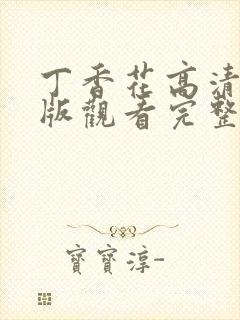 丁香花高清
版觀看完整
寶寶淳-